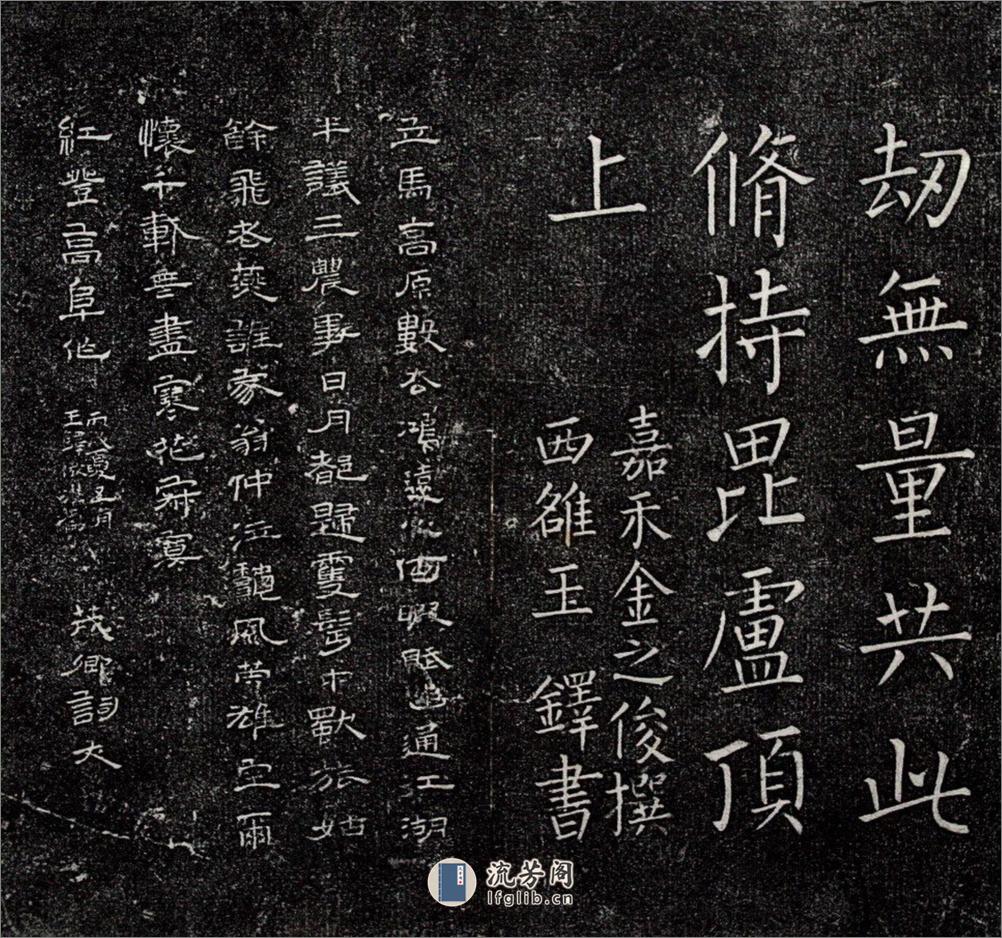 劫無量共此
脩持毘盧頂
上
嘉禾金之俊撰
西雒王 鐸書
立馬高原數去鴻遠
通江湖
半議三農事日月都歸雙鬢中歎旅姑
餘飛老燕誰家翁仲泣
風苦雄空爾
懷千
無盡寒花寂寞
紅豐高阜作
丙戌夏五月
王鐸
茂卿詞丈
流芳阁
lfglib.cn